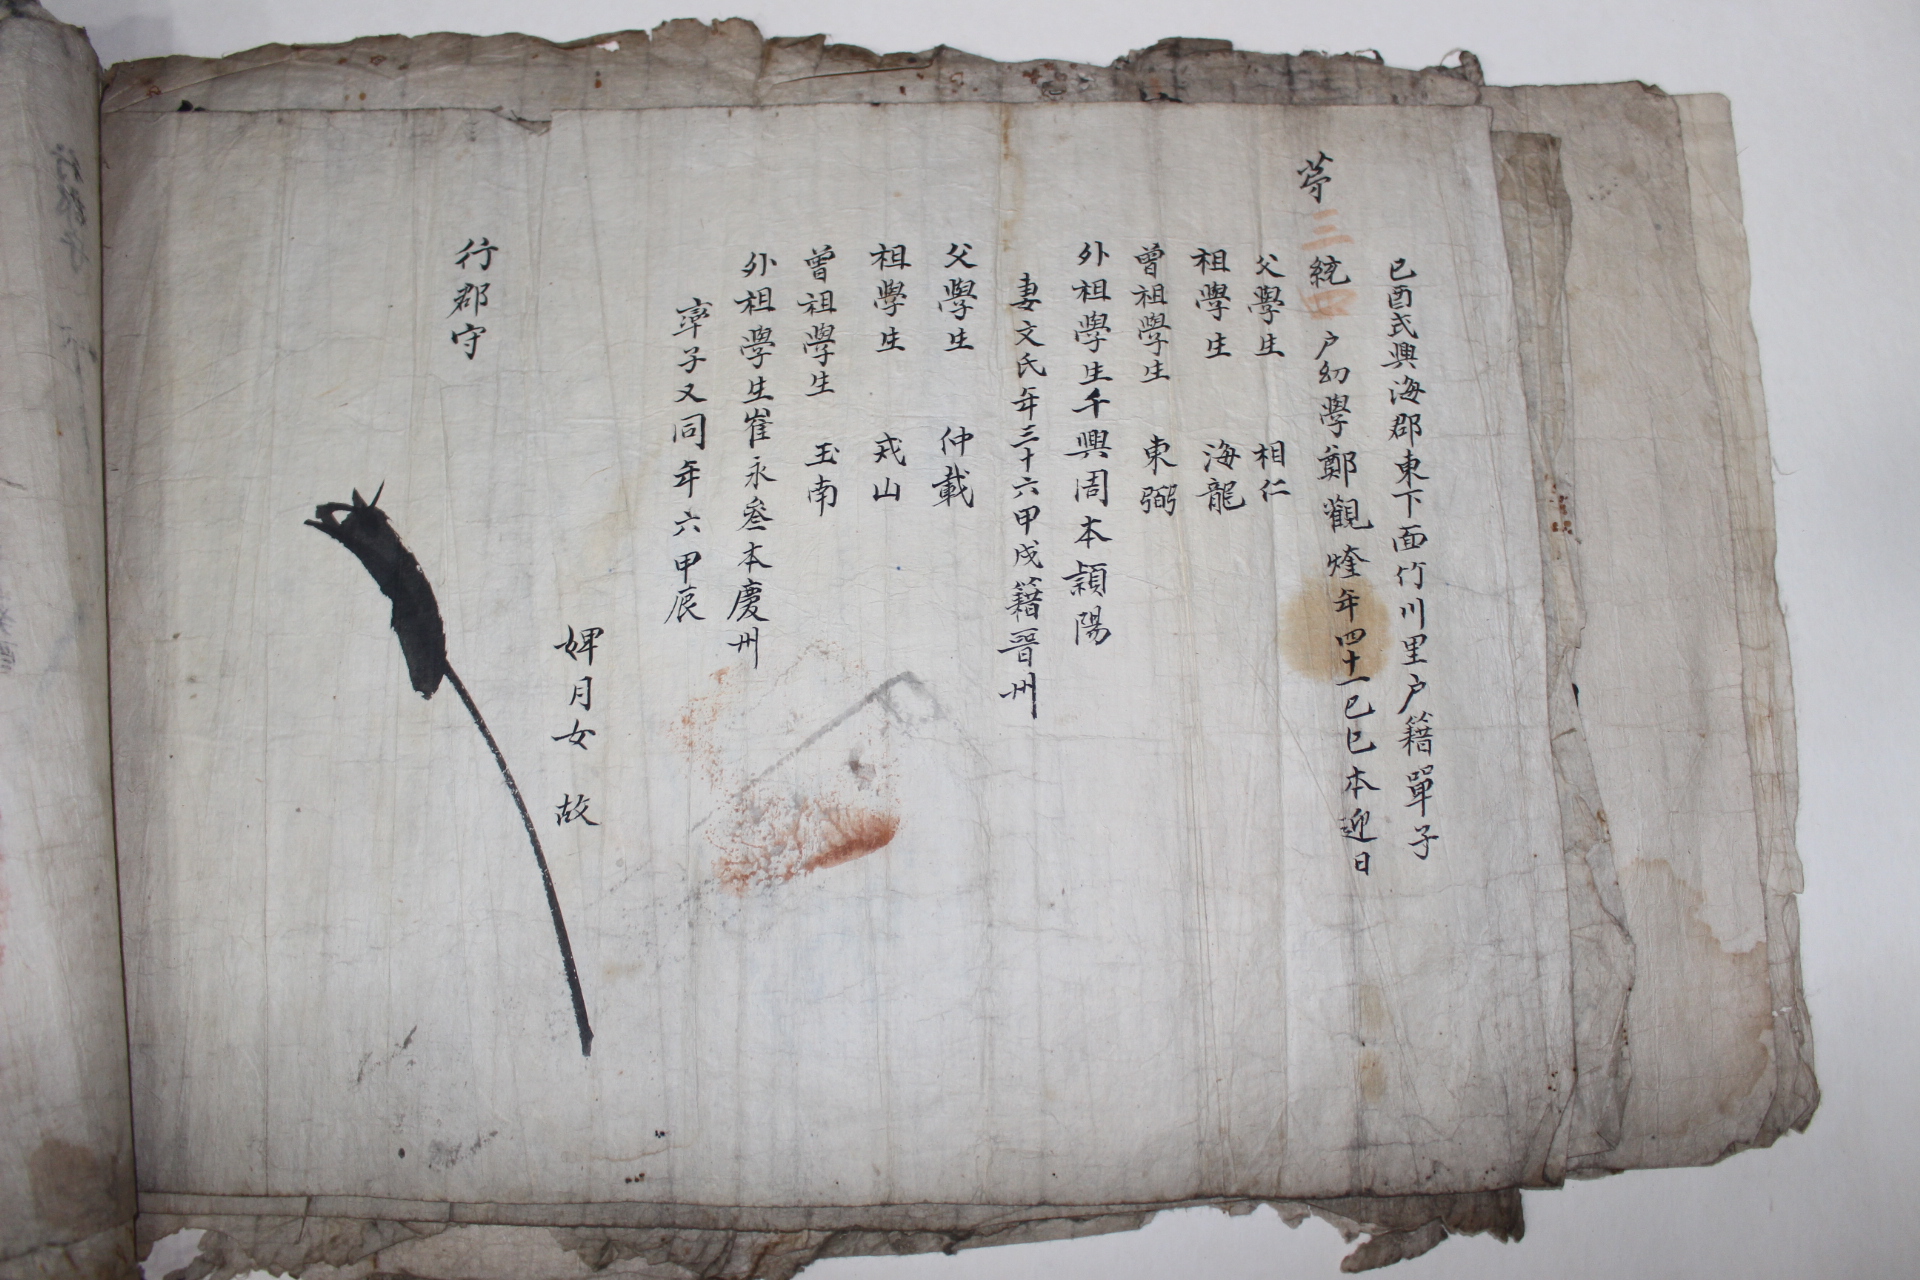 己酉式興海郡東下面竹川里户籍單子
苐三統四户幼學鄭觀煃年四十一己巳本迎日
父學生 相仁
祖學生 海龍
曾祖學生 東弼
外祖學生千興周本潁陽
妻文氏年三十六甲戌籍晋州
父學生 仲載
祖學生 戎山
曾祖學生 玉南
外祖學生崔永叄本慶州
率子又同年六甲辰
婢月女 故
行郡守